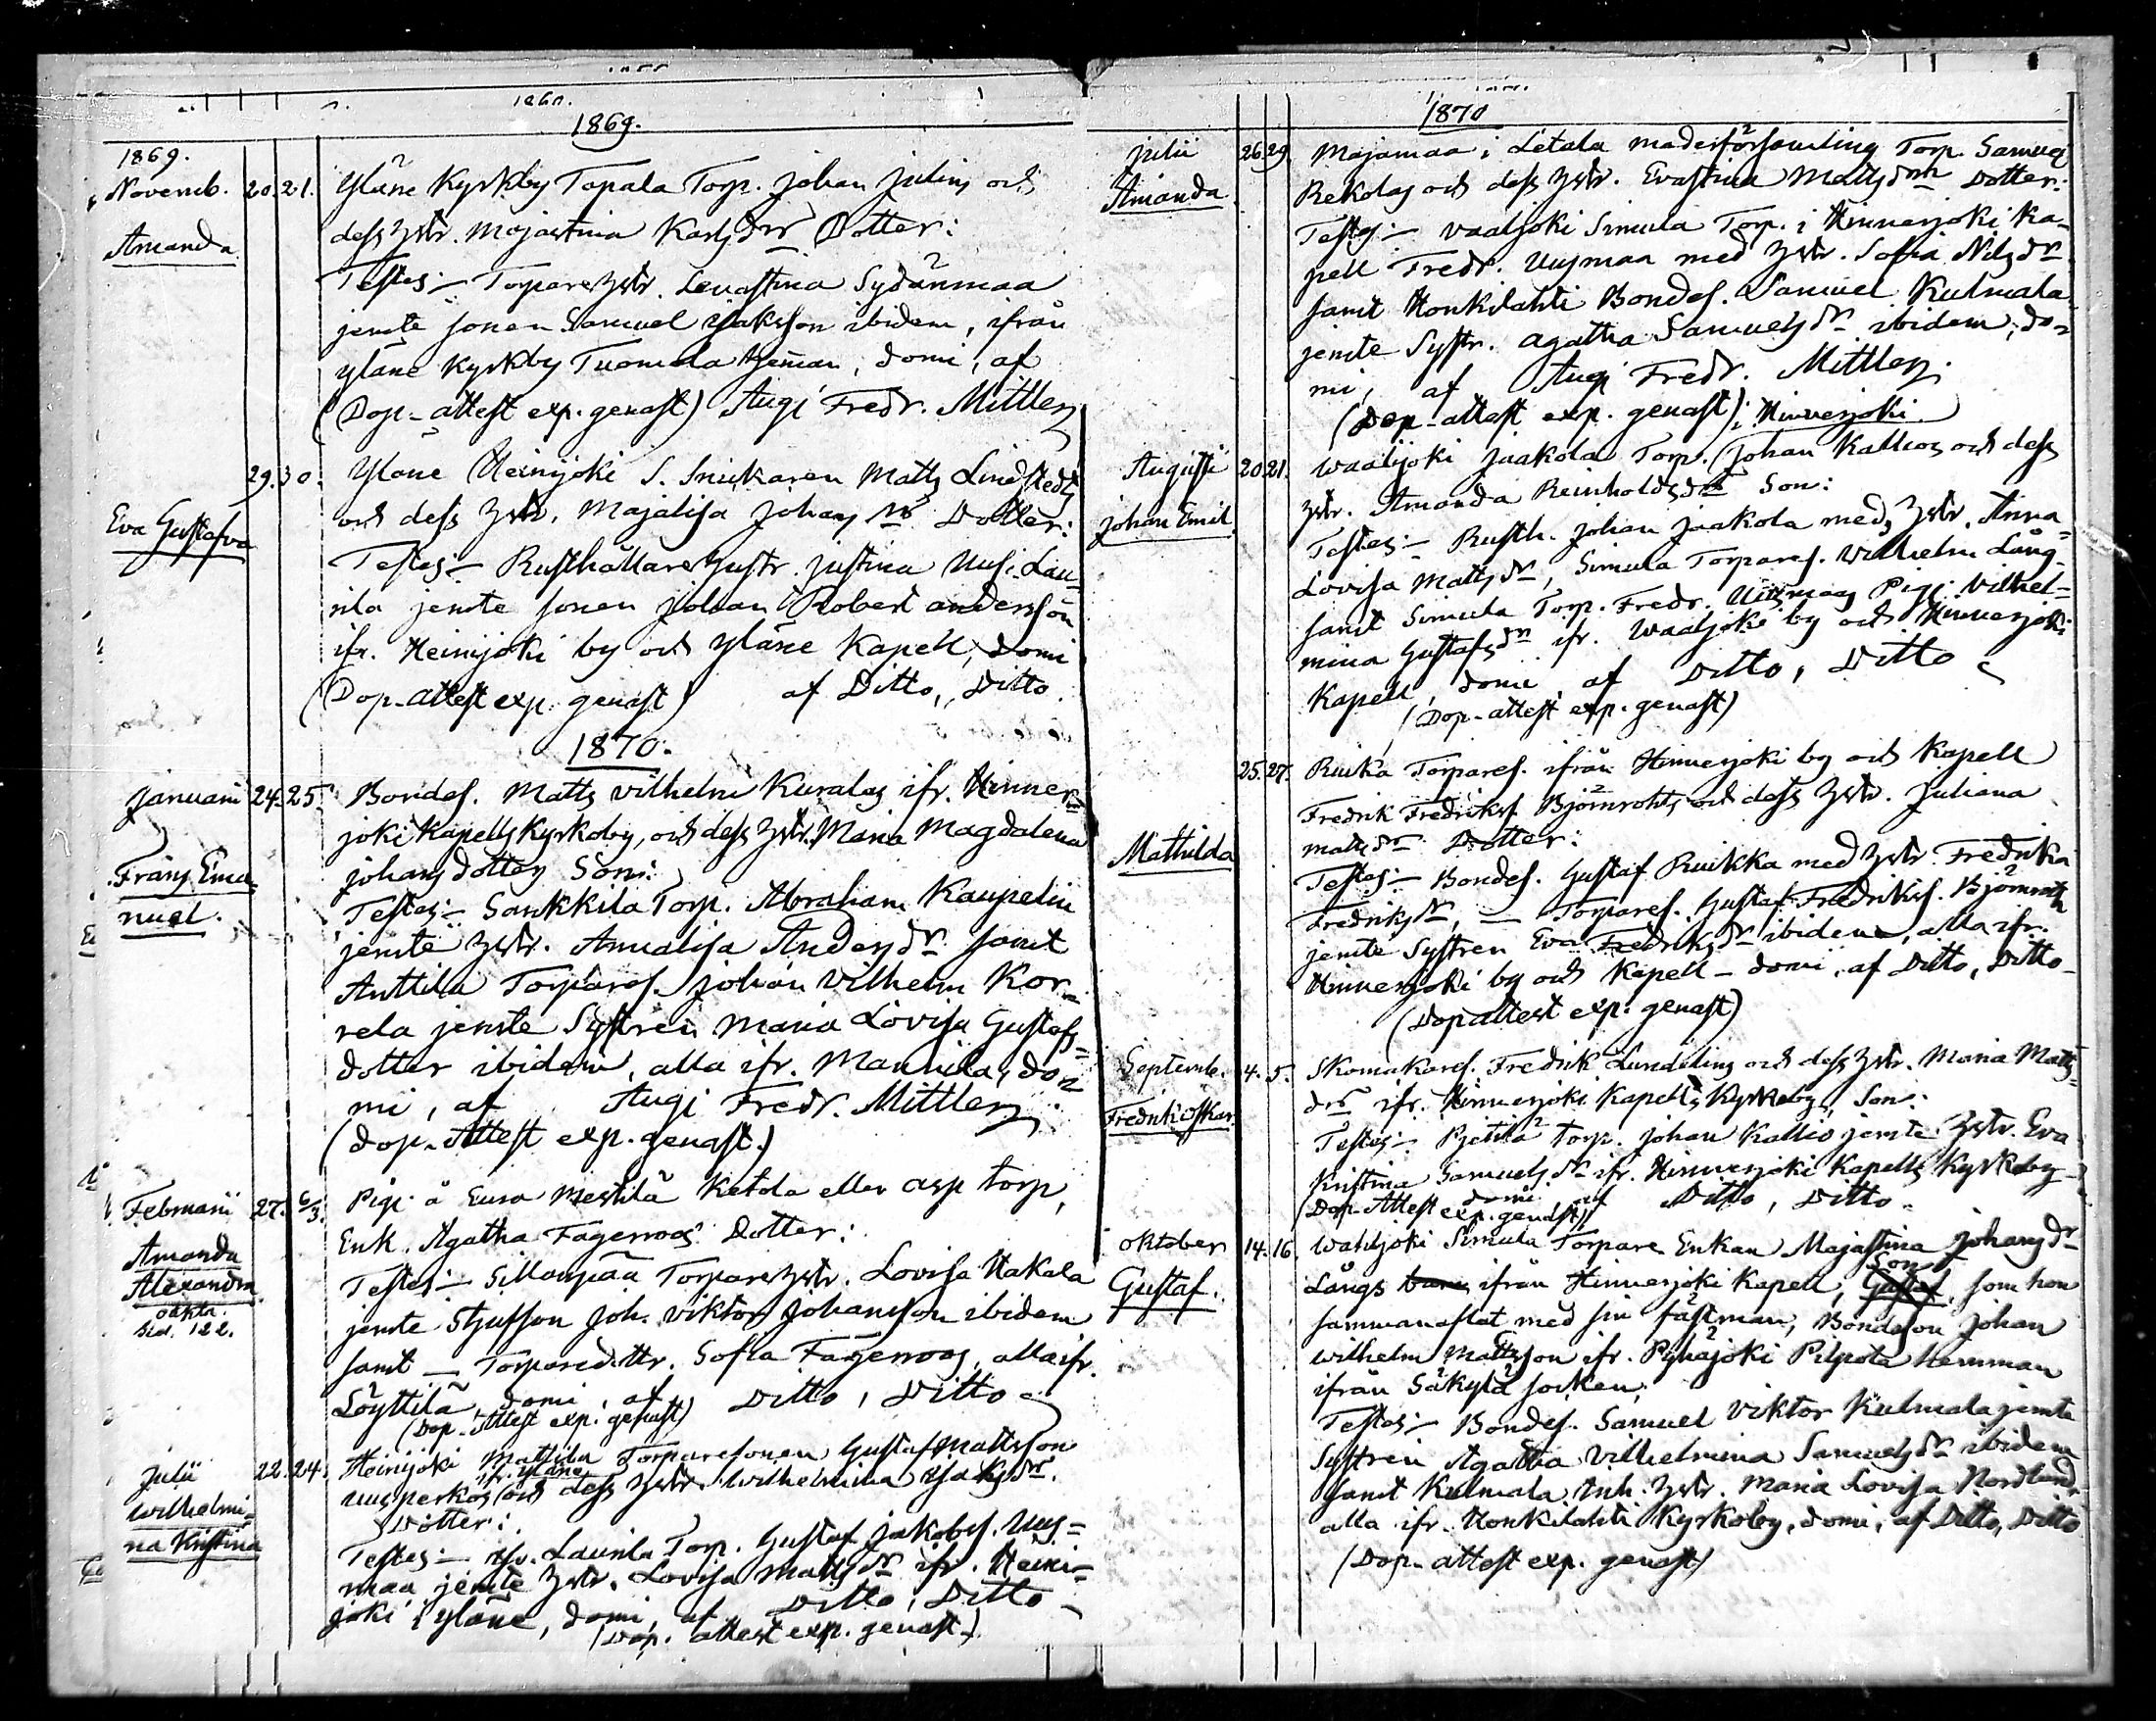 1869.
1869.
Novemb. 20. 21. Yläne Kyrkby Topala Torp. Johan Julins och
Amanda
dess hstr. Majastina Karlsdrs Dotter:
Testes:– Torparehstr. Lenastina Sydänmaa
jemte sonen Samuel Isaksson ibidem, ifrån
Yläne Kyrkby Tuomola Heman, domi, af
(Dop-attest exp. genast) Augi Fredr. Mittler
29. 30. Yläne Heinijoki S. Snickaren Matts Lindstedts
Eva Gustafva
och dess hstr. Majalisa Johans drs Dotter:
Testes:– Rusthållarehustr. Justina Uusi-Lau-
rila jemte sonen Johan Robert Andersson
ifr. Heinijoki by och Yläne Kapell, domi
(Dop-attest exp. genast) af Ditto, Ditto.
1870.
Januarii 24. 25. Bondes. Matts Vilhelm Kuralas ifr. Hinner-
joki Kapells Kyrkoby, och dess hstr. Maria Magdalena
Frans Ema-
nuel.
Johansdotters Son:
Testes:– Sankkila Torp. Abraham Kaupelin
jemte hstr. Annalisa Anders dr samt
Anttila Torpares. Johan Vilhelm Kor-
rela jemte Systren Maria Lovisa Gustafs-
dotter ibidem, alla ifr. Mannila, do-
mi, af Augi Fredr. Mittler
(Dop-Attest exp. genast.)
Februarii 27. 6/3. Pigi å Eura Mestilä Ketola eller Asp torp,
Amanda
Alexandra
oäkta.
Sid. 122.
Enk. Agatha Fageroos Dotter:
Testes:– Sillanpää Torparehstr. Lovisa Hakala
jemte Stjufson Joh. Viktor Johansson ibidem
samt — Torparedottr. Sofia Fageroos, alla ifr.
Löyttilä, domi, af Ditto, Ditto
(Dop-Attest exp. genast)
Julii 22. 24. Heinijoki Mattila Torparesonen Gustaf Mattsson
ifr. Yläne
Wilhelmi-
na Kristina
Uusperkos och dess hstr. Wilhelmina Isaks drs.
Dotter:
Testes:– Laurila Torp. Gustaf Jakobs. Uus-
maa jemte hstr. Lovisa Matts dr ifr. Heini-
joki i Yläne, domi, af Ditto, Ditto
(Dop. attest exp. genast)
1870
Julii 26. 29. Majamaa i Letala moderförsamling Torp. Samuel
Amanda
Rekolas och dess hstr. Evastina Matts drs Dotter:
Testes:– Vaaljoki Simula Torp. i Hinnerjoki Ka-
pell Fredr. Uusmaa med hstr. Sofia Nils dr
samt Honkilahti Bondes. Samuel Kulmala
jemte Systr. Agatha Samuels dr ibidem, do-
mi, af Augi Fredr. Mittler
(Dop-attest exp. genast); Hinnerjoki
Augusti 20. 21. Waaljoki Jaakola Torp. Johan Kallios och dess
Johan Emil.
hstr. Amanda Reinholds drs Son:
Testes:– Rusth. Johan Jaakola med hstr. Anna
Lovisa Matts dr, Simula Torpares. Wilhelm Lång
samt Simula Torp. Fredr. Uusmaas Pigi Vilhel-
mina Gustafs dr ifr. Waaljoki by och Hinnerjoki
Kapell, domi af Ditto, Ditto
(Dop-attest exp. genast)
25. 27. Ruika Torpares. ifrån Hinnerjoki by och Kapell
Mathilda
Fredrik Fredrikss. Björnrohts och dess hstr. Juliana
Matts drs Dotter:
Testes:– Bondes. Gustaf Ruikka med hstr. Fredrika
Fredriks dr, — Torpares. Gustaf Fredrikss. Björnroht
jemte Systren Eva Fredriks dr ibidem, alla ifr.
Hinnerjoki by och Kapell – domi, af Ditto, Ditto
(Dopattest exp. genast)
Septemb. 4. 5. Skomakares. Fredrik Lundelins och dess hstr. Maria Matts-
Fredrik Oskar.
drs ifr. Hinnerjoki Kapells Kyrkoby, Son:
Testes:– Pjetilä torp. Johan Kallio jemte hstr. Eva
Kristina Samuels dr ifr. Hinnerjoki Kapells Kyrkoby
domi, af Ditto, Ditto
(Dop-Attest exp. genast)
Oktober 14. 16. Waaljoki Simula Torpare Enkan Majastina Johans dr
Gustaf.
Långs barn ifrån Hinnerjoki Kapell, Gustaf Son, som hon
sammanaflat med sin fästman, Bondeson Johan
Wilhelm Mattsson ifr. Pyhäjoki Pilpola Hemman
ifrån Säkylä Socken.
Testes:– Bondes. Samuel Viktor Kulmala jemte
Systren Agatha Vilhelmina Samuels dr ibidem
samt Kulmala Inh. hstr. Maria Lovisa Nordlund
alla ifr. Honkilahti Kyrkoby, domi, af Ditto, Ditto
(Dop-attest exp. genast)